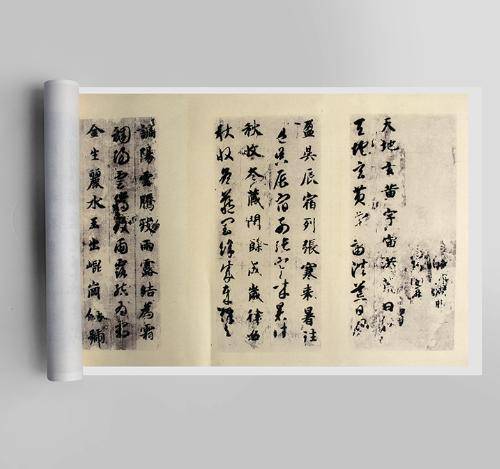 天地玄黄宇宙洪荒日月
天地玄黄宇宙洪荒日月
盈昃辰宿列張寒来暑往
盈昃辰宿列張寒来暑往
秋收冬藏閏餘成歲律呂
秋收冬藏閏餘成歲律呂
調陽雲騰致雨露結為霜
調陽雲騰致雨露結為霜
金生麗水玉出崐崗劍號